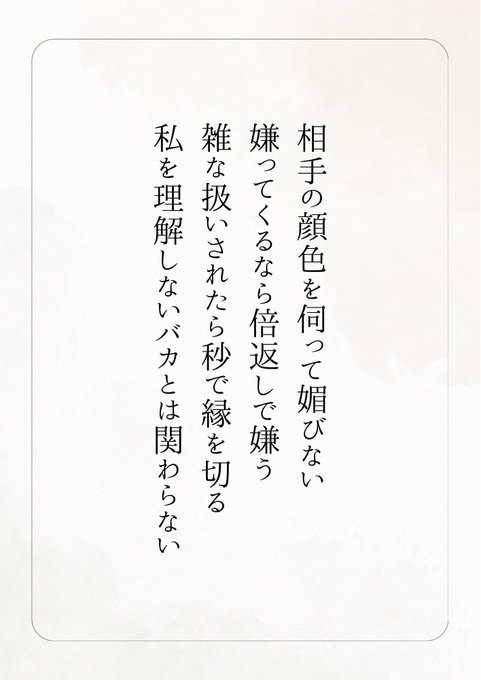 相手の顔色を伺って媚びない
嫌ってくるなら倍返しで嫌う
雑な扱いされたら秒で縁を切る
私を理解しないバカとは関わらない